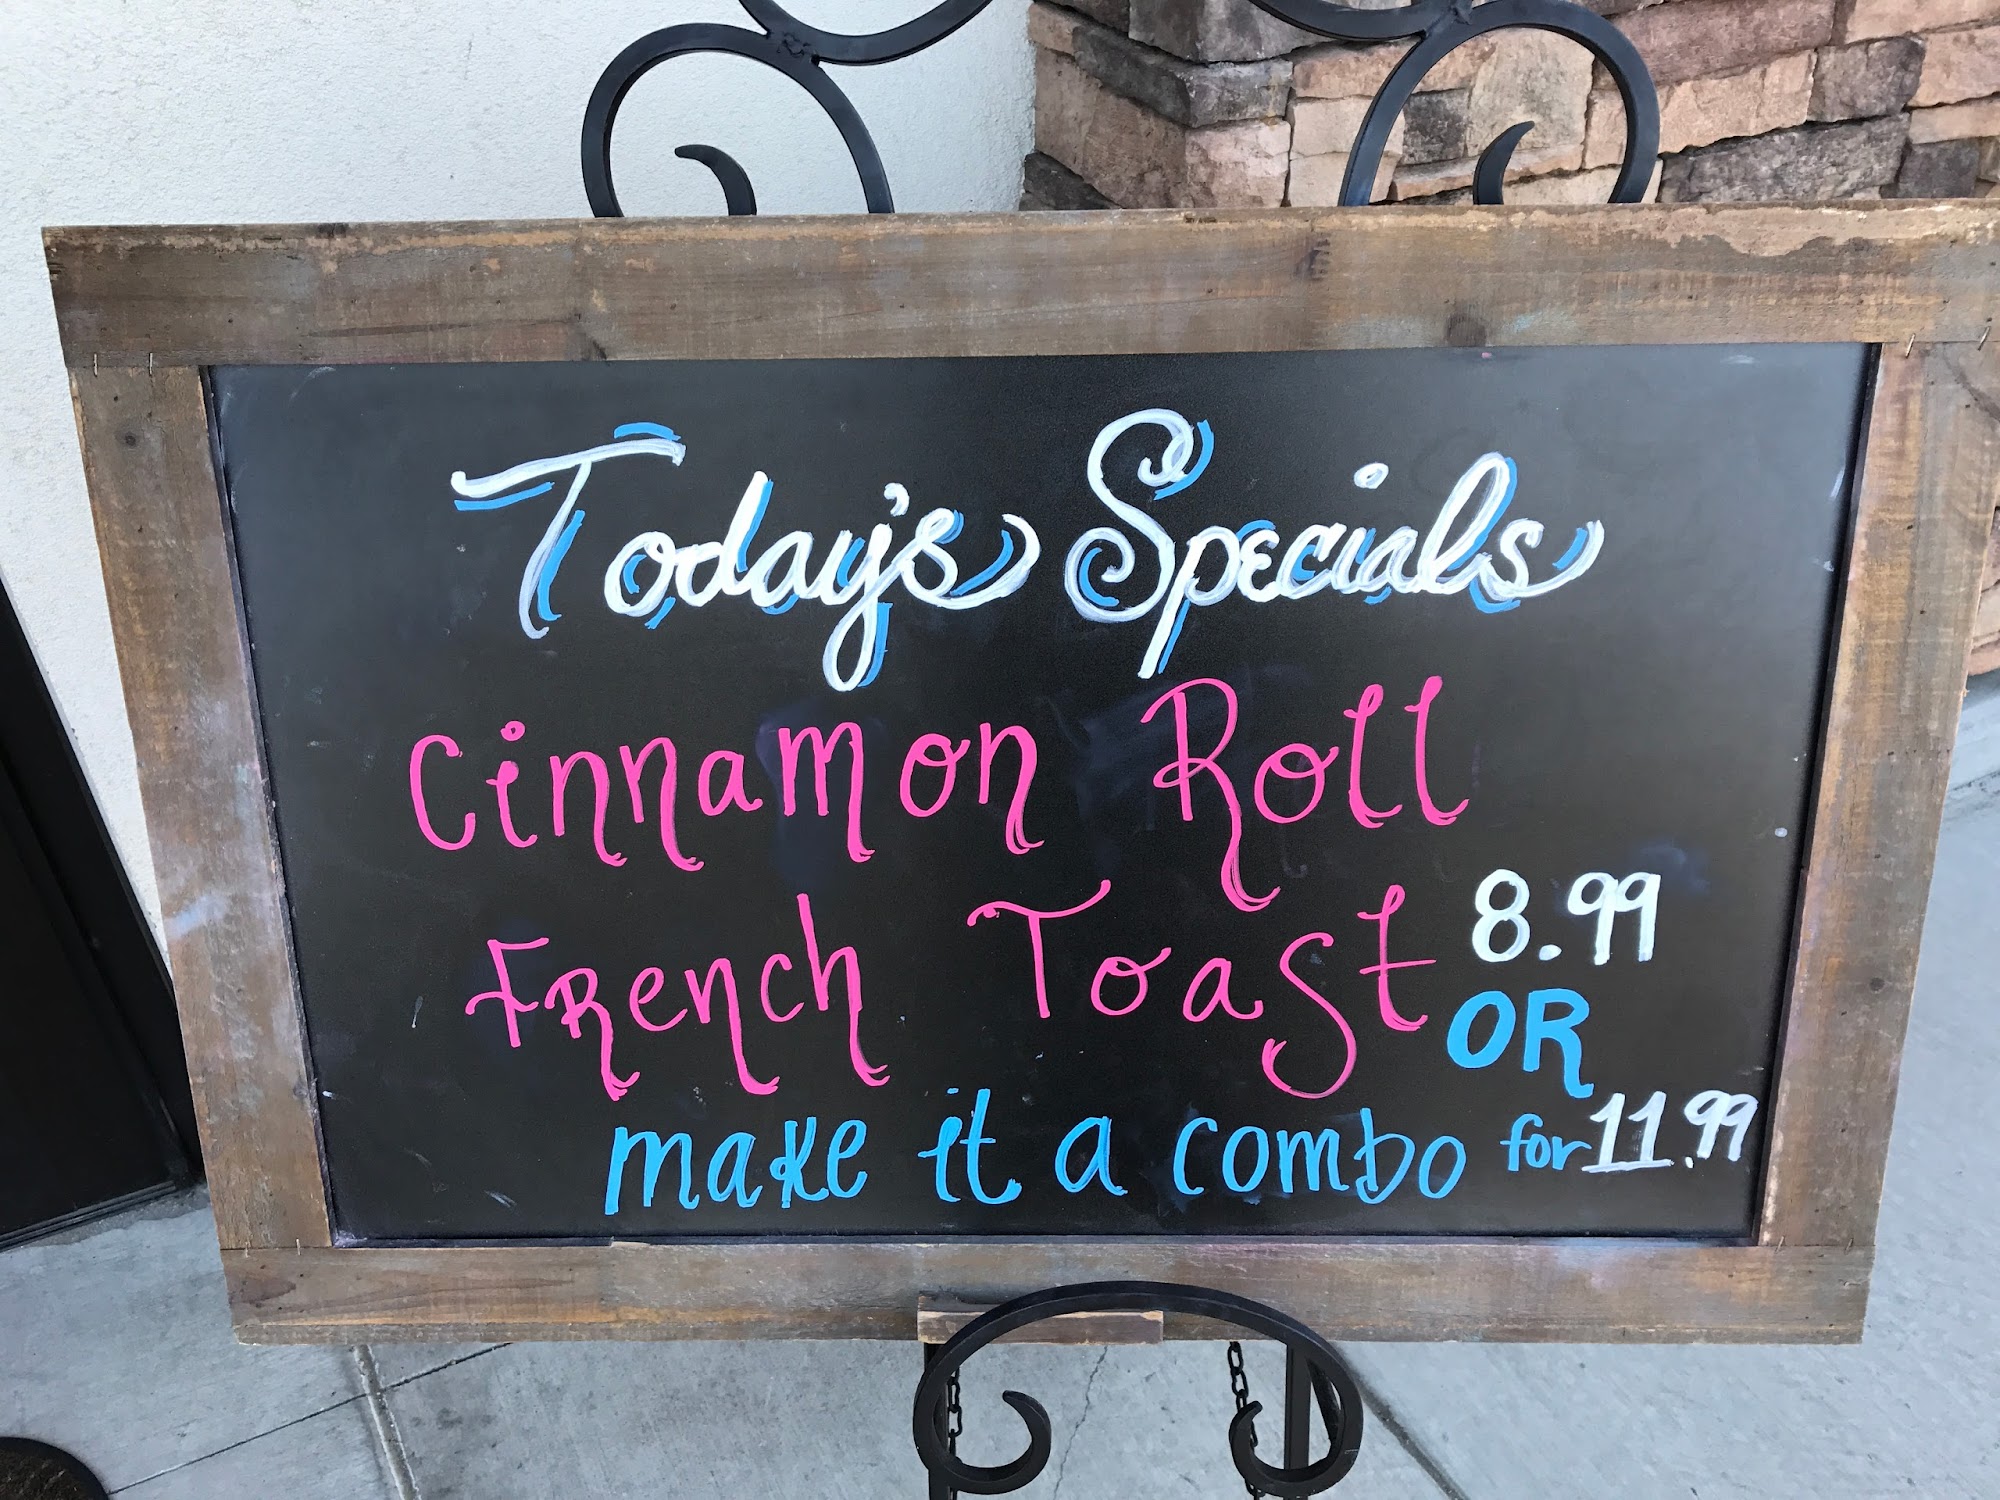 Today's Specials
Cinnamon Roll
French Toast 8.99
OR
make it a combo for 11.99